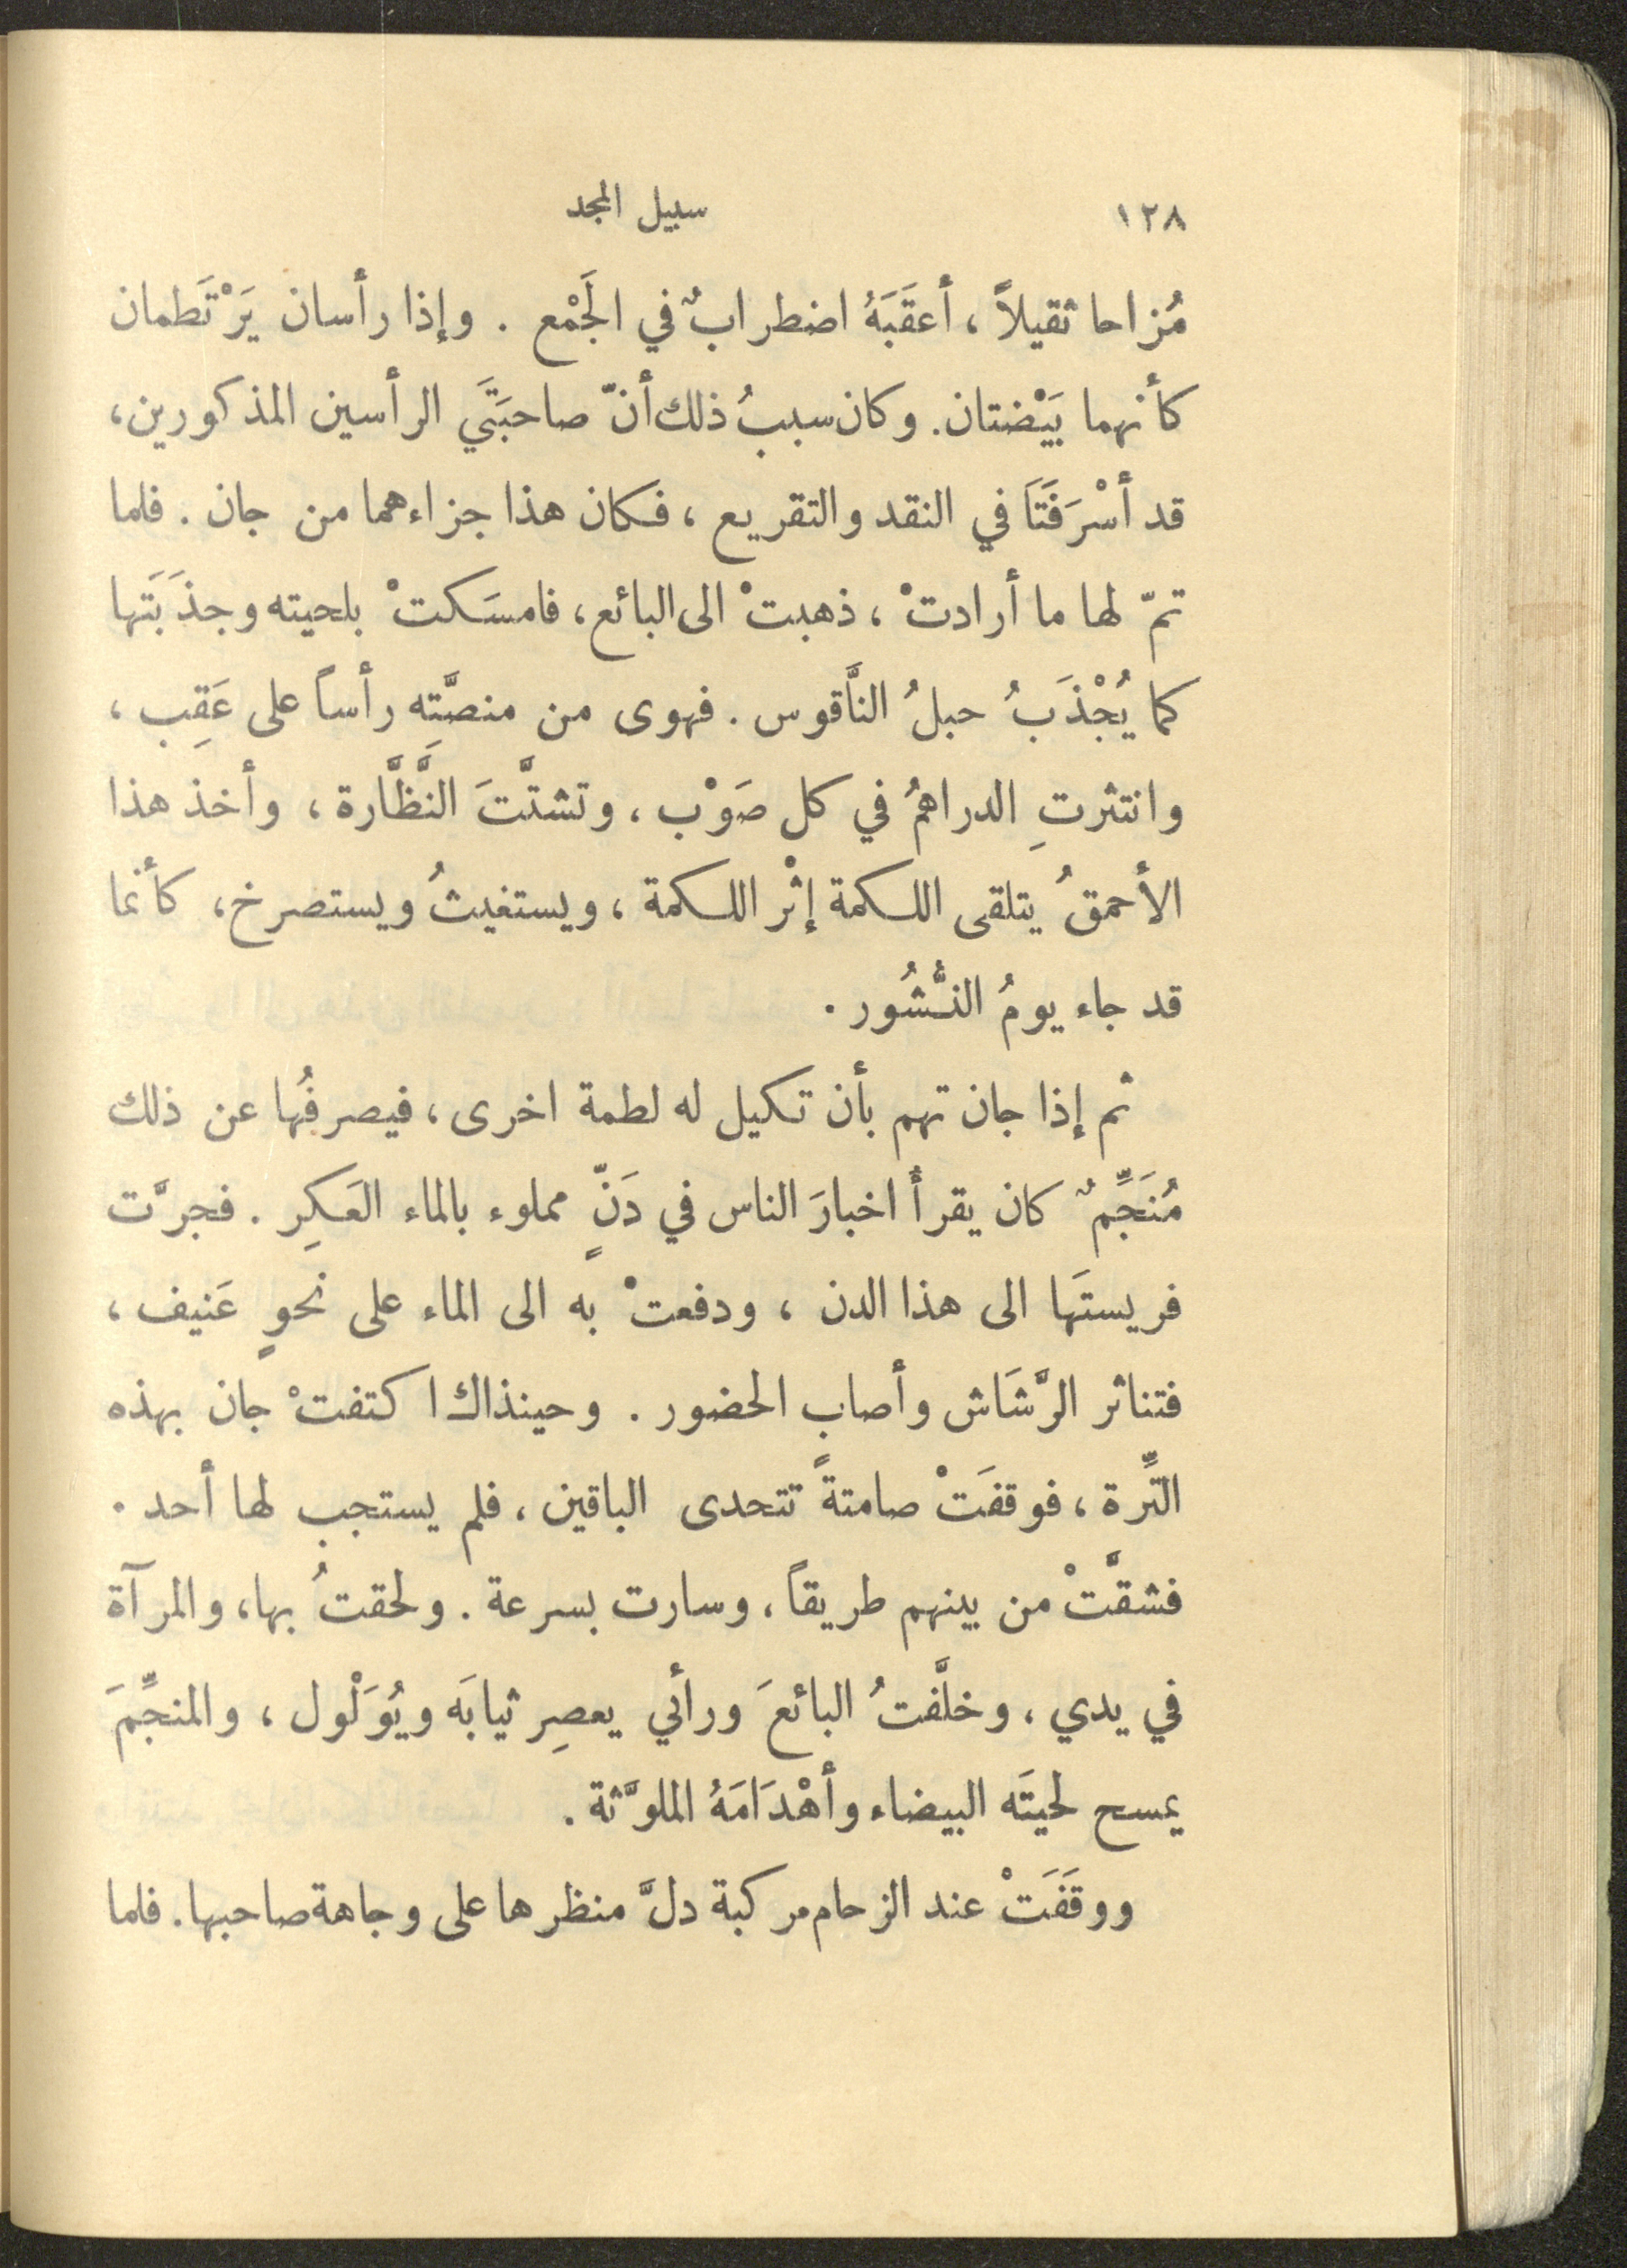 ١٢٨ سبيل المجد
مُزاحا ثقيلاً ، أعقَبَهُ اضطرابٌ في الجَمْع . وإذا رأسان يَرْتَطمان
كأنهما بَيْضتان. وكان سببُ ذلك أنّ صاحبَتَي الرأسين المذكورين،
قد أسْرَفَتَا في النقد والتقريع ، فكان هذا جزاءهما من جان . فلما
تمّ لها ما أرادتْ ، ذهبتْ الى البائع، فامسَكتْ بلحيته وجذَبَتَها
كما يُجْذَبُ حبلُ النَّاقوس . فهوى من منصَّتِه رأساً على عَقِب ،
وانتثرتِ الدراهمُ في كل صَوْب ، وتشتَّتَ النَّظَّارة ، وأخذ هذا
الأحمقُ يتلقى اللكمة إثْر اللكمة ، ويستغيثُ ويستصرخ ، كأنما
قد جاء يومُ النُّشُور .
ثم إذا جان تهم بأن تكيل له لطمة اخرى ، فيصرفُها عن ذلك
مُنَجِّمٌ كان يقرأُ اخبارَ الناس في دَنّ مملوء بالماء العَكِرِ . فجرَّت
فريستَها الى هذا الدنٍ ، ودفعتْ به الى الماء على نحوٍ عَنيف ،
فتناثر الرَّشَاش وأصاب الحضور . وحينذاك اكتفتْ جان بهذه
التِّرة ، فوقفَتْ صامتةً تتحدى الباقين ، فلم يستجب لها أحد .
فشقَّتْ من بينهم طريقاً ، وسارت بسرعة . ولحقتُ بها، والمرآة
في يدي ، وخلَّفتُ البائعَ ورائي يعصِر ثيابَه ويُوَلْول ، والمنجِّمَ
يمسح لحيتَه البيضاء وأهْدَامَهُ الملوَّثة .
ووقَفَتْ عند الزحام مركبة دلَّ منظرها على وجاهة صاحبها. فلما